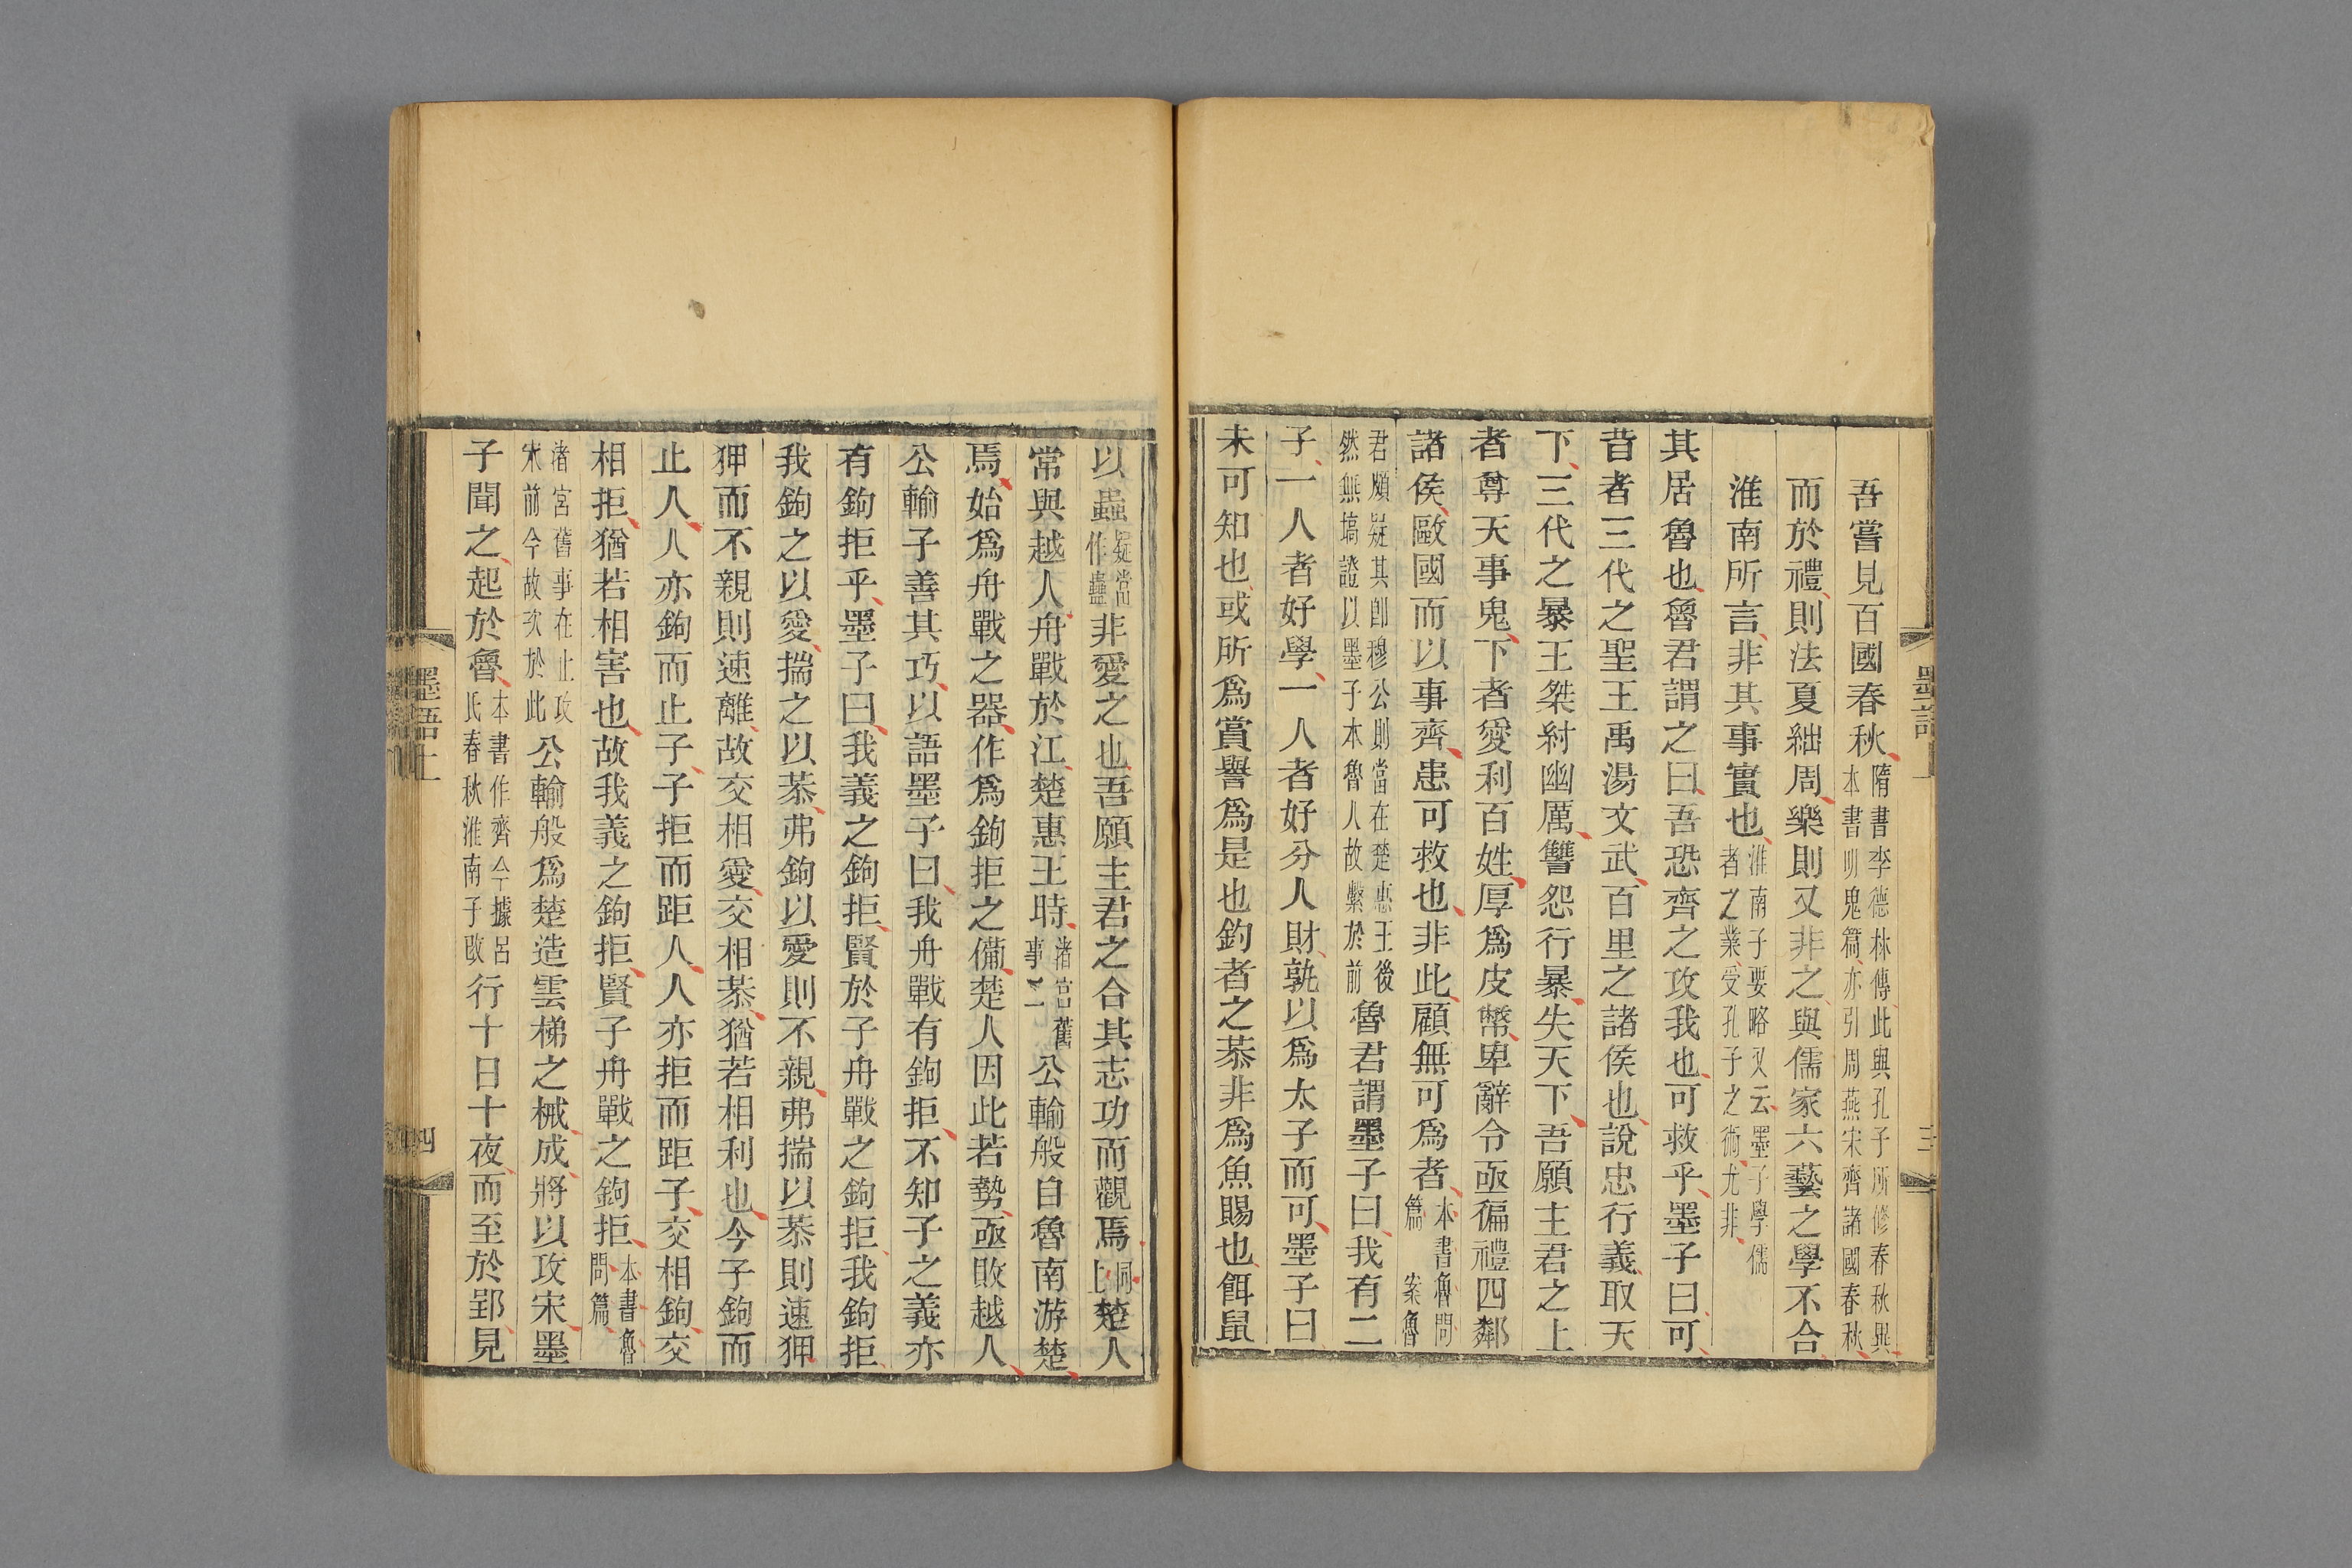 吾嘗見百國春秋隋書李德林傳此與孔子所修春秋異本書明鬼篇亦引周燕宋齊諸國春秋
而於禮則法夏絀周樂則又非之與儒家六藝之學不合
淮南所言非其事實也淮南子要略又云墨子學儒者之業受孔子之術尤非
其居魯也魯君謂之曰吾恐齊之攻我也可救乎墨子曰可
昔者三代之聖王禹湯文武百里之諸侯也說忠行義取天
下三代之暴王桀紂幽厲讐怨行暴失天下吾願主君之上
者尊天事鬼下者愛利百姓厚爲皮幣卑辭令亟徧禮四鄰
諸侯敺國而以事齊患可救也非此顧無可爲者本書魯問篇 案魯
君頗疑其卽穆公則當在楚惠王後然無塙證以墨子本魯人故繫於前魯君謂墨子曰我有二
子一人者好學一人者好分人財孰以爲太子而可墨子曰
未可知也或所爲賞譽爲是也釣者之恭非爲魚賜也餌鼠
墨語上
三
以蟲疑當作蠱非愛之也吾願主君之合其志功而觀焉同上楚人
常與越人舟戰於江楚惠王時渚宮舊事二公輸般自魯南游楚
焉始爲舟戰之器作爲鉤拒之備楚人因此若埶亟敗越人
公輸子善其巧以語墨子曰我舟戰有鉤拒不知子之義亦
有鉤拒乎墨子曰我義之鉤拒賢於子舟戰之鉤拒我鉤拒
我鉤之以愛揣之以恭弗鉤以愛則不親弗揣以恭則速狎
狎而不親則速離故交相愛交相恭猶若相利也今子鉤而
止人人亦鉤而止子子拒而距人人亦拒而距子交相鉤交
相拒猶若相害也故我義之鉤拒賢子舟戰之鉤拒本書魯問篇
渚宮舊事在止攻宋前今故次於此公輸般爲楚造雲梯之械成將以攻宋墨
子聞之起於魯本書作齊今據呂氏春秋淮南子改行十日十夜而至於郢見
墨語上
四